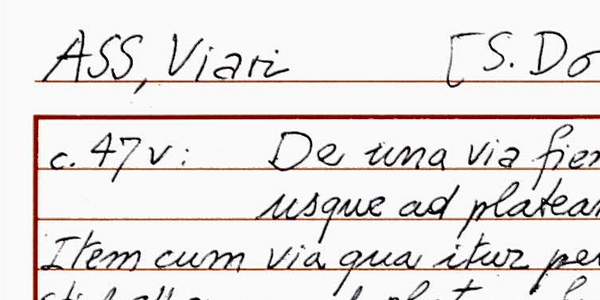 ASS, Viari [S. Do
c. 47v: De una via fier
usque ad platear
Item cum via qua itur per